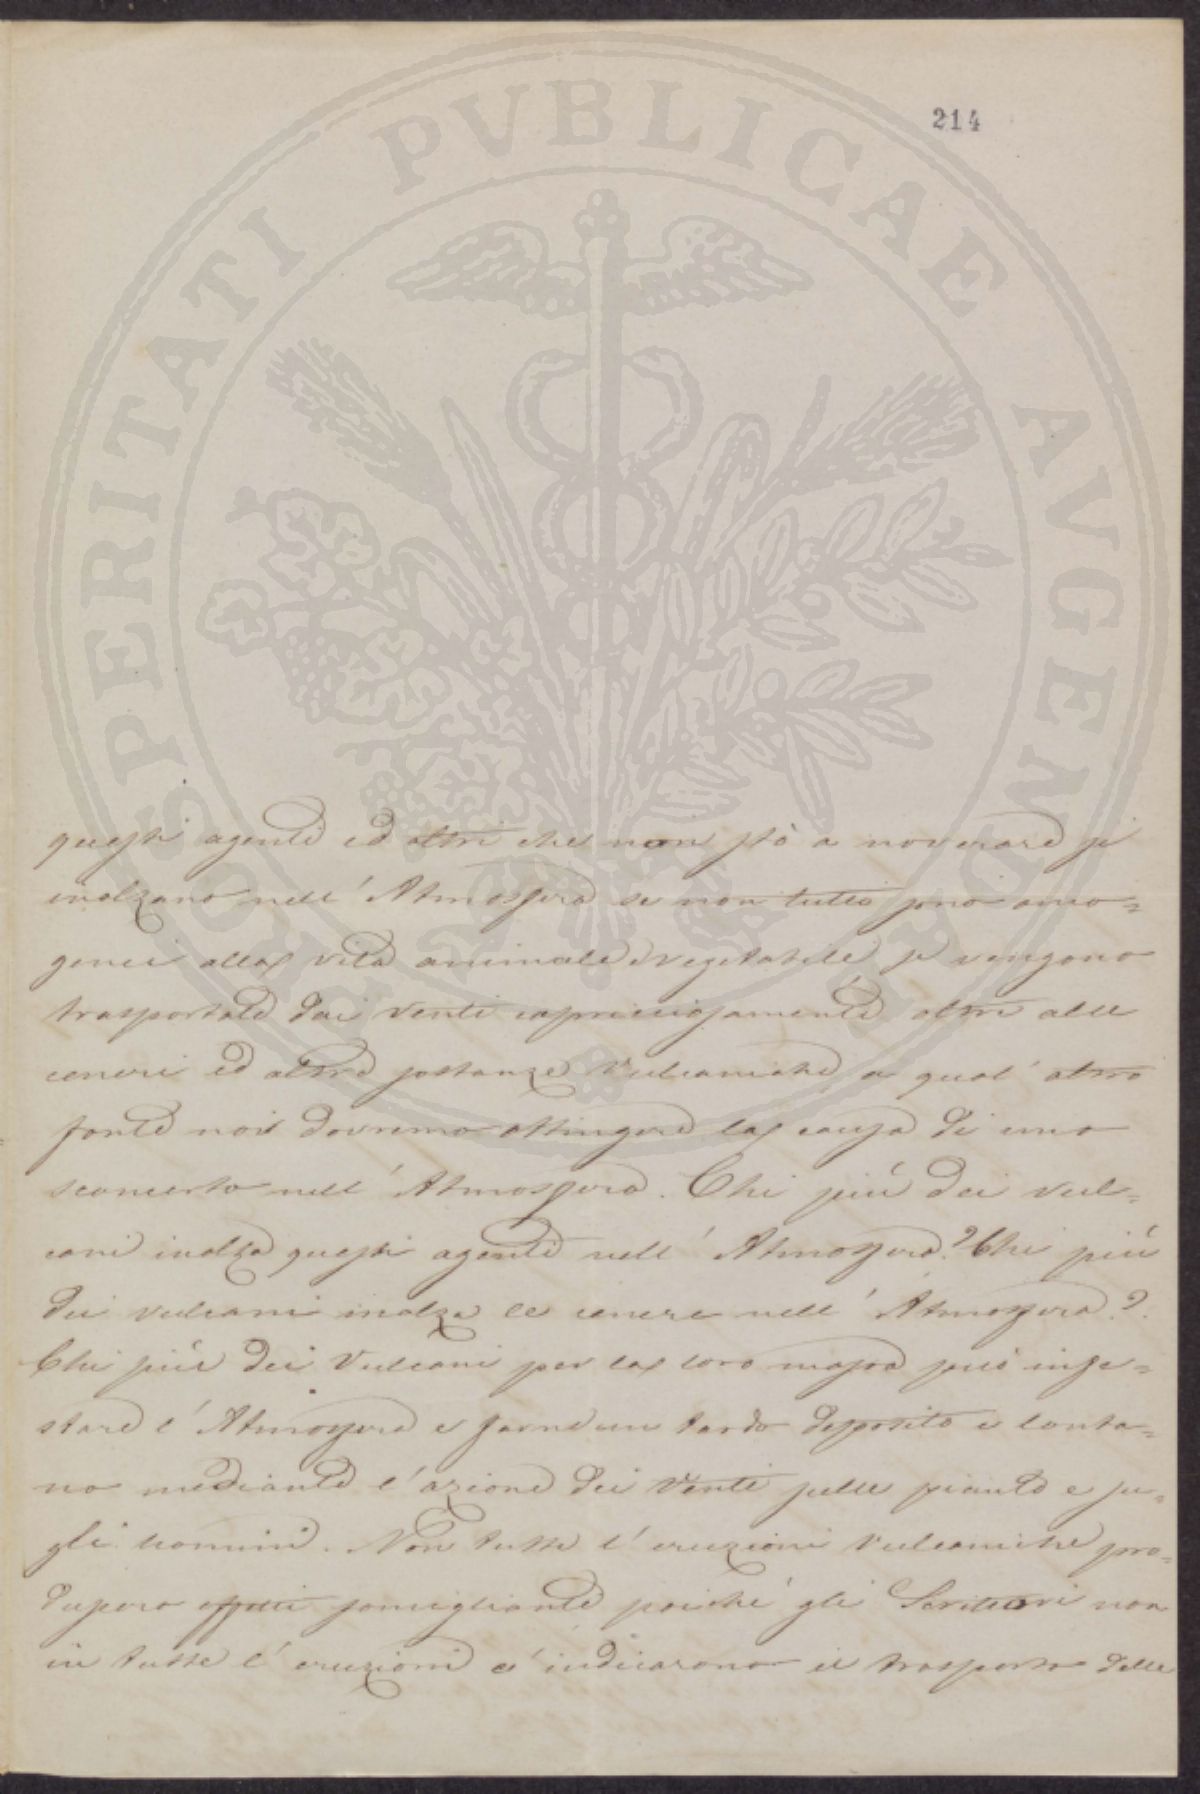 214
PROSPERITATI PVBLICAE AVGENDAE
questi agenti ed altri che non stò a noverare si
inalzano nell' Atmosfera se non tutti sono omo=
genei alla vita animale e vegetabile se vengono
trasportate dai venti capricciosamente oltre alle
ceneri ed altre sostanze Vulcaniche a qual' altro
fonte noi dovremo attingere la causa di uno
sconcerto nell' Atmosfera. Chi più dei vul=
cani inalza questi agenti nell' Atmosfera? Chi più
dei vulcani inalza le cenere nell' Atmosfera?
Chi più dei Vulcani per la loro massa può infe=
stare l' Atmosfera e farne un tardo deposito e lonta=
no mediante l' azione dei Venti sulle piante e su=
gli uomini. Non tutte l' eruzioni Vulcaniche pro=
dussero effetti somiglianti poiché gli Scrittori non
in tutte l' eruzioni c' indicarono il trasporto delle